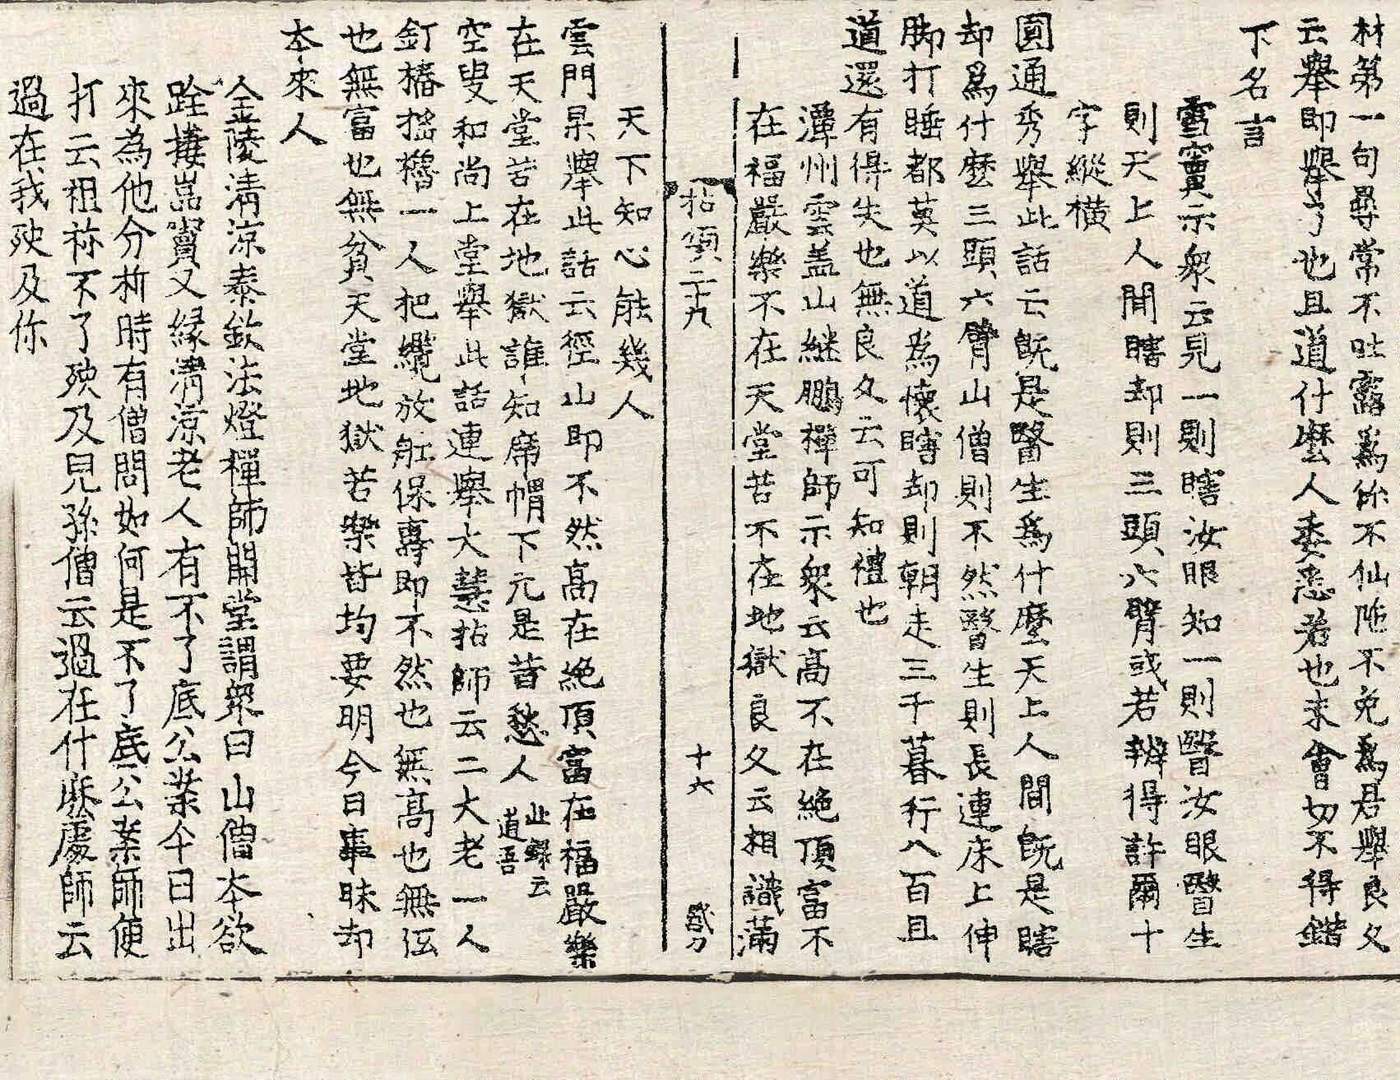 材第一句尋常不吐露爲你不仙陁不免爲君舉良久
云舉即舉了也且道什麽人委悉若也未會切不得錯
下名言
雪竇示衆云見一則瞎汝眼知一則瞖汝眼瞖生
則天上人間瞎却則三頭六臂或若辨得許爾十
字縱橫
圓通秀舉此話云旣是瞖生爲什麽天上人間旣是瞎
却爲什麽三頭六臂山僧則不然瞖生則長連床上伸
脚打睡都莫以道爲懷瞎却則朝走三千暮行八百且
道還有得失也無良久云可知禮也
潭州雲盖山継鵬禪師示衆云高不在絶頂富不
在福嚴樂不在天堂苦不在地獄良久云相識滿
拈頌二十九
十六
天下知心能幾人
雲門杲舉此話云徑山即不然高在絶頂富在福嚴樂
在天堂苦在地獄誰知席帽下元是昔愁人
此録云
道吾
空叟和尚上堂舉此話連舉大慧拈師云二大老一人
釘樁搖櫓一人把纜放舡保專即不然也無高也無低
也無富也無貧天堂地獄苦樂皆均要明今日事昧却
本來人
金陵淸凉泰欽法燈禪師開堂謂衆曰山僧本欲
跧捿嵓竇又緣淸凉老人有不了底公案今日出
來為他分析時有僧問如何是不了底公案師便
打云祖祢不了殃及兒孫僧云過在什麽處師云
過在我殃及你